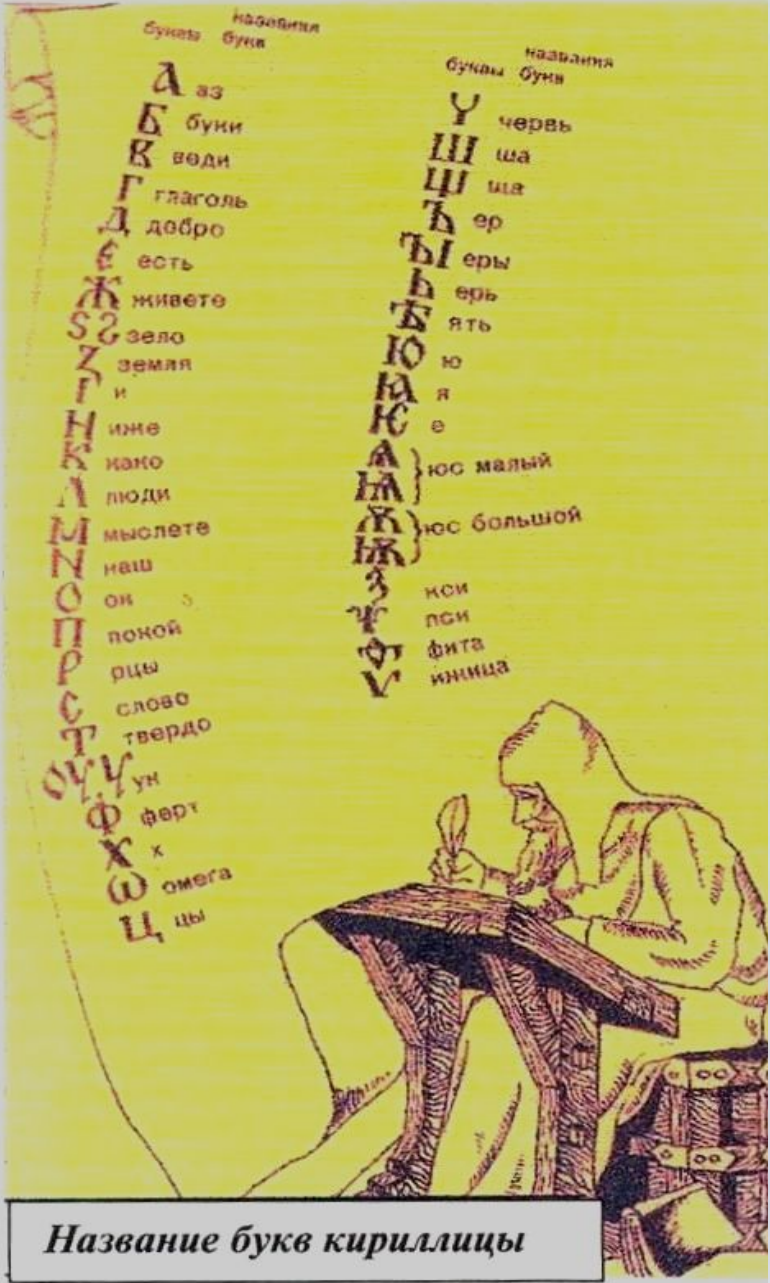 названия
буквы букв
А аз
Б буки
В веди
Г глаголь
Д добро
Є есть
Ж живете
Ѕ Ꙅ зело
З земля
І и
Н иже
К како
Л люди
М мыслете
N наш
О он
П покой
Р рцы
С слово
Т твердо
ОУ У ук
Ф ферт
Х х
Ѡ омега
Ц цы
названия
буквы букв
Ч червь
Ш ша
Щ ша
Ъ ер
ЪІ еры
Ь ерь
Ѣ ять
Ю ю
Ꙗ я
Ѥ е
Ѧ
Ѩ } юс малый
Ѫ
Ѭ } юс большой
Ѯ кси
Ѱ пси
Ѳ фита
Ѵ ижица
Название букв кириллицы